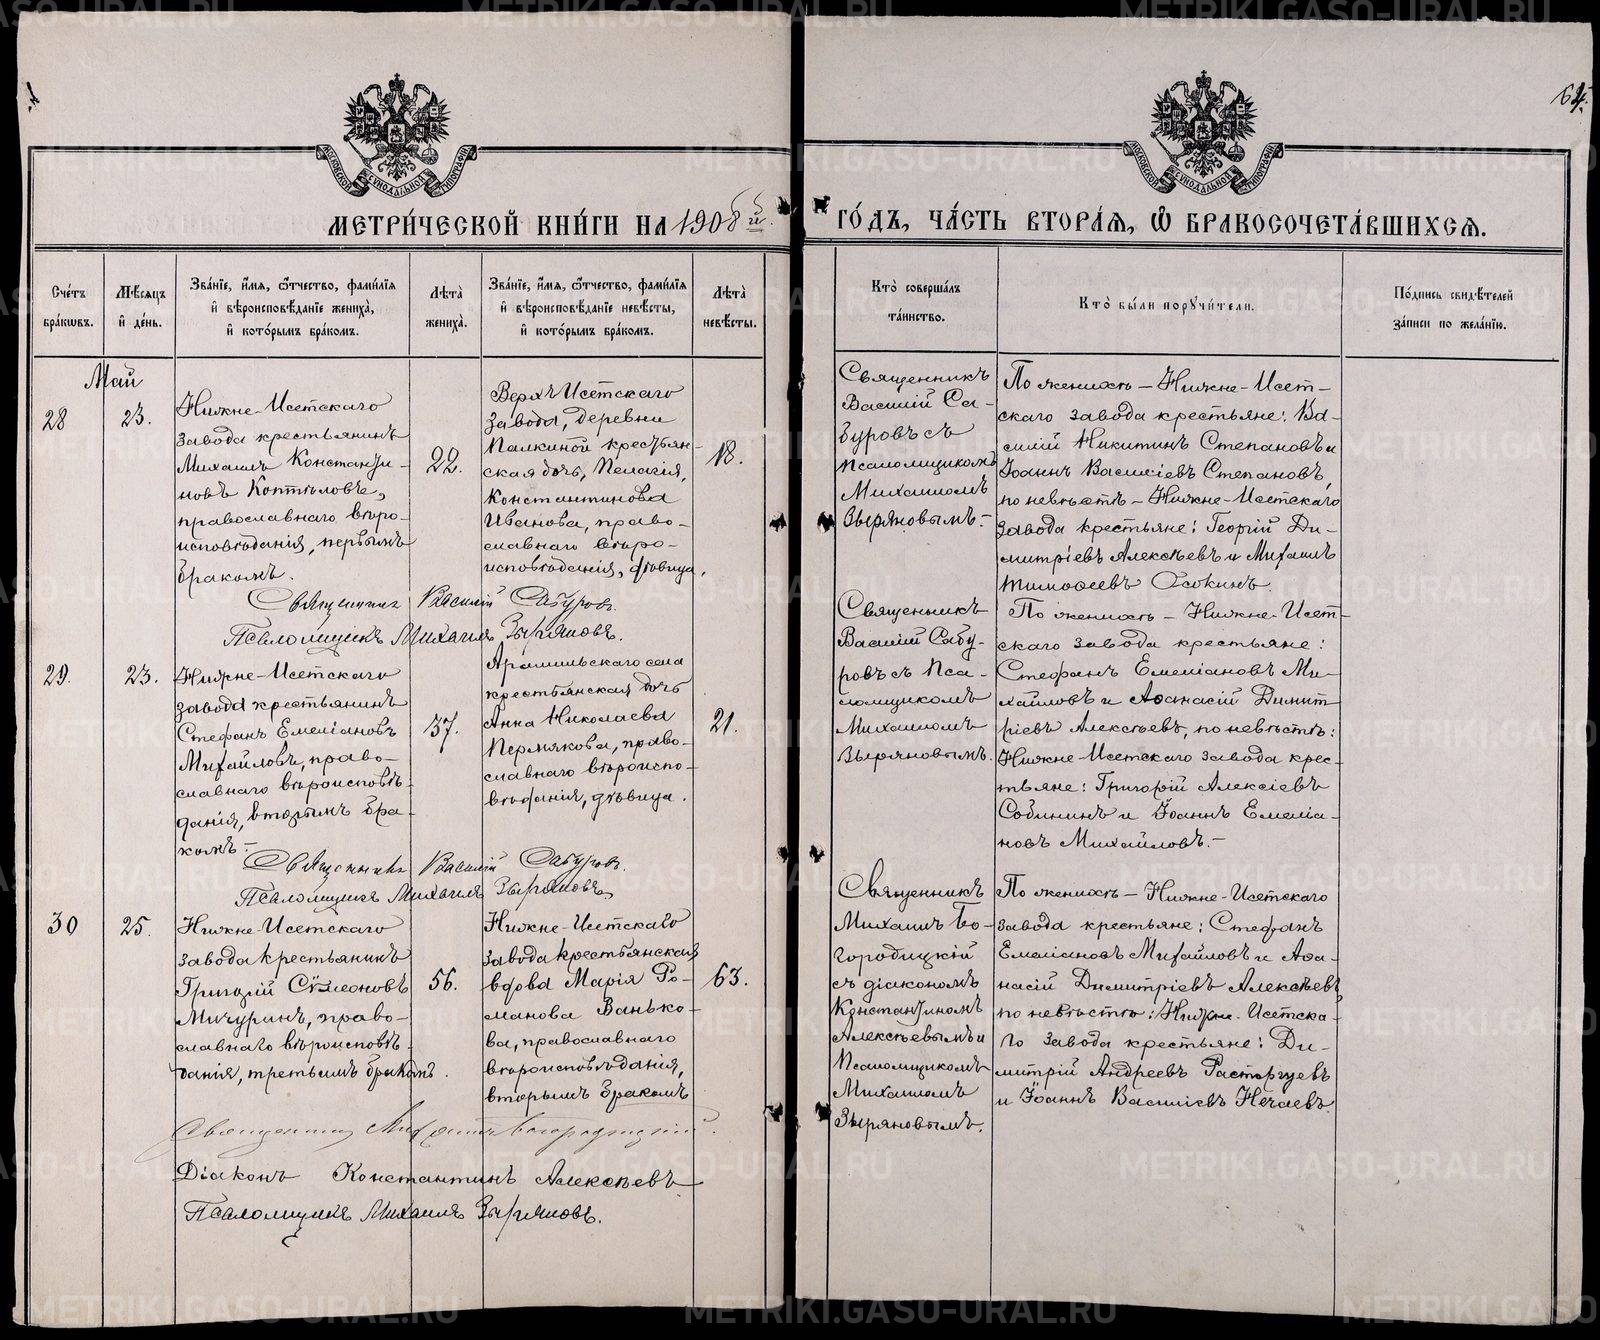 64.
МОСКОВСКОЙ СѴНОДАЛЬНОЙ ТИПОГРАФІИ
МОСКОВСКОЙ СѴНОДАЛЬНОЙ ТИПОГРАФІИ
МЕТРИ́ЧЕСКОЙ КНИ́ГИ НА 1908 й
ГО́ДЪ, ЧА́СТЬ ВТОРА́Я, Ѡ БРАКОСОЧЕТА́ВШИХСЯ.
Сче́тъ
бра́кѡвъ.
Мѣ́сяцъ
и҆ де́нь.
Зва́нїе, и҆́мя, ѻ҆́тчество, фами́лїя
и҆ вѣроисповѣ́данїе жениха̀,
и҆ кото́рымъ бра́комъ.
Лѣ́та
жениха̀.
Зва́нїе, и҆́мя, ѻ҆́тчество, фами́лїя
и҆ вѣроисповѣ́данїе невѣ́сты,
и҆ кото́рымъ бра́комъ.
Лѣ́та
невѣ́сты.
Кто̀ соверша́лъ
та́инство.
Кто̀ бы́ли порꙋчи́тели.
По́дпись свидѣ́телей
за́писи по жела́нїю.
Май
28
23.
Нижне-Исетскаго
завода крестьянинъ
Михаилъ Константи-
новъ Коптѣловъ,
православнаго вѣро-
исповѣданія, первымъ
бракомъ.
22.
Верхъ Исетскаго
завода, деревни
Палкиной крестьян-
ская дочь, Пелагія,
Константинова
Иванова, право-
славнаго вѣро-
исповѣданія, дѣвица.
18.
Священникъ
Василій Са-
буровъ съ
псаломщикомъ
Михаиломъ
Зыряновымъ.-
По женихѣ - Нижне-Исет-
скаго завода крестьяне: Ва-
силій Никитинъ Степановъ и
Іоаннъ Василіевъ Степановъ,
по невѣстѣ - Нижне-Исетскаго
завода крестьяне: Георгій Ди-
митріевъ Алексѣевъ и Михаилъ
Тимофеевъ Осокинъ.
Священникъ Василій Сабуровъ.
Псаломщикъ Михаилъ Зыряновъ.
29.
23.
Нижне-Исетскаго
завода крестьянинъ
Стефанъ Емеліановъ
Михайловъ, право-
славнаго вѣроисповѣ-
данія, вторымъ бра-
комъ.-
37.
Арамильскаго села
крестьянская дочь
Анна Николаева
Пермякова, право-
славнаго вѣроиспо-
вѣданія, дѣвица.
21.
Священникъ
Василій Сабу-
ровъ съ Пса-
ломщикомъ
Михаиломъ
Зыряновымъ.
По женихѣ - Нижне-Исет-
скаго завода крестьяне:
Стефанъ Емеліановъ Ми-
хайловъ и Аѳанасій Димит
ріевъ Алексѣевъ, по невѣстѣ:
Нижне Исетскаго завода крес-
тьяне: Григорій Алексіевъ
Собининъ и Іоаннъ Емеліа-
новъ Михайловъ.-
Священникъ Василій Сабуровъ.
Псаломщикъ Михаилъ Зыряновъ.
30
25.
Нижне-Исетскаго
завода крестьянинъ
Григорій Сѵмеоновъ
Мичуринъ, право-
славнаго вѣроисповѣ-
данія, третьимъ бракомъ.
56.
Нижне-Исетскаго
завода крестьянская
вдова Марія Ро-
манова Ванько-
ва, православнаго
вѣроисповѣданія,
вторымъ бракомъ
63.
Священникъ
Михаилъ Бо-
городицкій
съ діакономъ
Константиномъ
Алексѣевымъ и
Псаломщикомъ
Михаиломъ
Зыряновымъ.
По женихѣ - Нижне-Исетскаго
завода крестьяне: Стефанъ
Емеліановъ Михайловъ и Аѳа-
насій Димитріевъ Алексѣевъ,
по невѣстѣ: Нижне-Исетска-
го завода крестьяне: Ди-
митрій Андреевъ Расторгуевъ
и Іоаннъ Василіевъ Нечаевъ.
Священникъ Михаилъ Богородицкій.
Діаконъ Константинъ Алексѣевъ
Псаломщикъ Михаилъ Зыряновъ.
METRIKI.GASO-URAL.RU